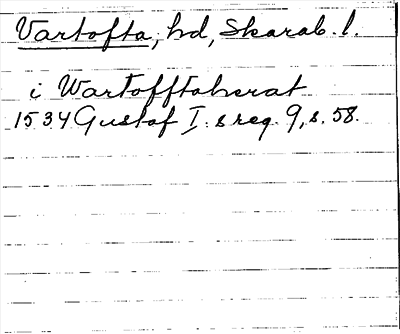 Vartofta, hd, Skarab. l.
i Wartofftaherat
1534 Gustaf I:s reg. 9, s. 58.